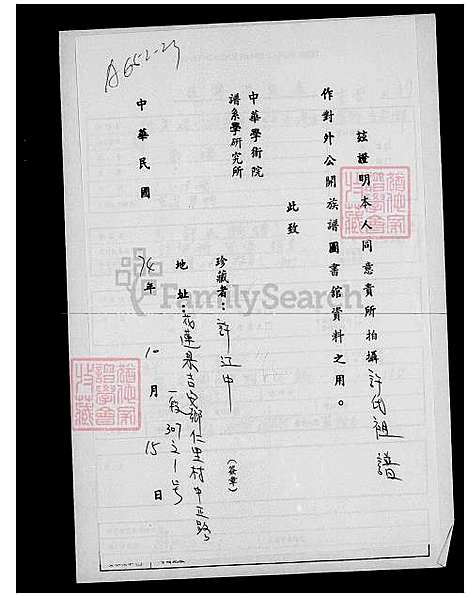 A652-23
茲證明本人同意貴所拍攝許氏祖譜
作對外公開族譜圖書館資料之用。
此致
中華學術院
譜系學研究所
珍藏者：許江中
(簽章)
地址：花蓮縣吉安鄉仁里村中正路
一段307之1号
中華民國 74年 10月 15日
FamilySearch
譜學會
特藏
譜學會
特藏